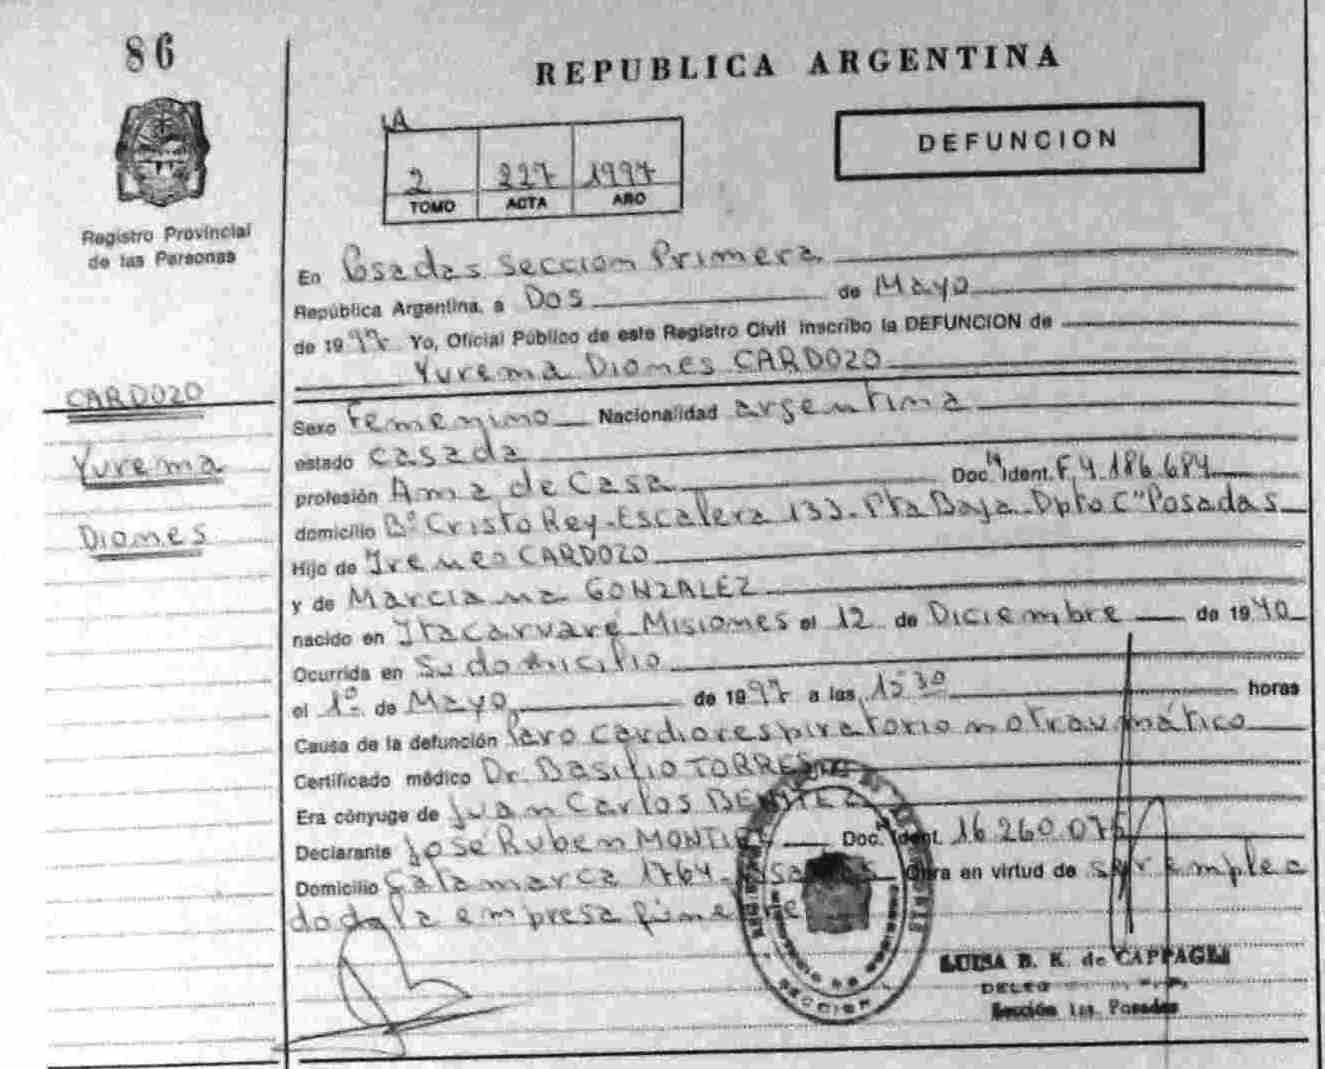 86
REPUBLICA ARGENTINA
DEFUNCION
1A
2 227 1997
TOMO ACTA AÑO
Registro Provincial
de las Personas
CARDOZO
Yurema
Diomes
En Posadas Seccion Primera
República Argentina, a Dos de Mayo
de 1997 Yo, Oficial Público de este Registro Civil inscribo la DEFUNCION de
Yurema Diomes CARDOZO
Sexo Femenino Nacionalidad argentina
estado casada
profesión Ama de Casa Doc. Ident. F.4.186.684
domicilio Bº Cristo Rey-Escalera 133-Pta Baja-Dpto C" Posadas
Hijo de Ireneo CARDOZO
y de Marciana GONZALEZ
nacido en Itacaruaré-Misiones el 12 de Diciembre de 1940
Ocurrida en Su domicilio
el 1º de Mayo de 1997 a las 15 30 horas
Causa de la defunción Paro cardiorespiratorio no traumático
Certificado médico Dr. Basilio TORRES
Era cónyuge de Juan Carlos BENITEZ
Declarante José Ruben MONTIEL Doc. Ident. 16.260.075
Domicilio Catamarca 1764-Posadas Obra en virtud de ser emplea
do de la empresa fúnebre
SECCION 1
LUISA B. K. de CAPPAGLI
Sección 1ra. Posadas